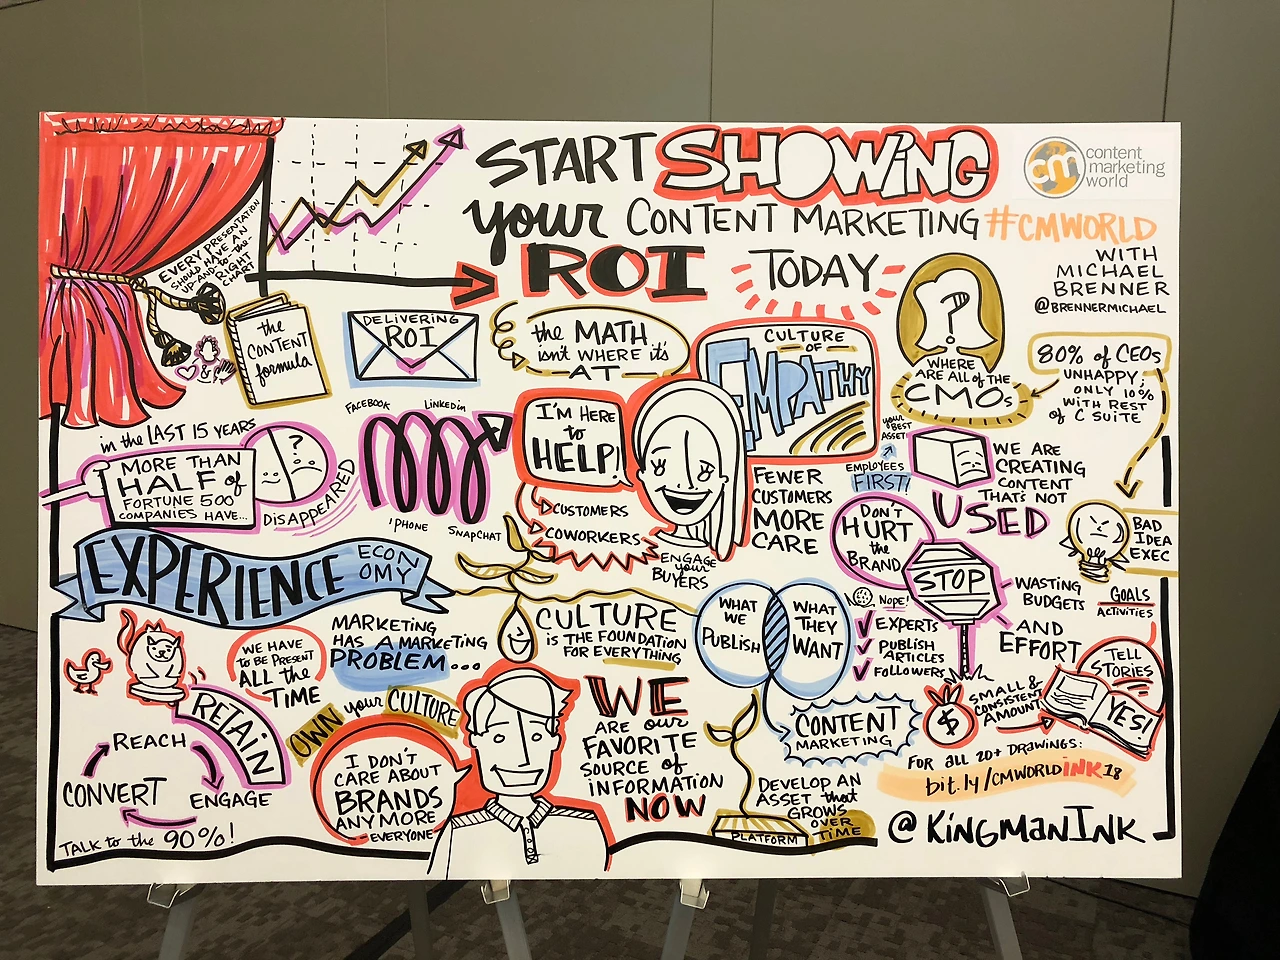 START SHOWING
your CONTENT MARKETING #CMWORLD
ROI TODAY
cm content
marketing
world
WITH
MICHAEL
BRENNER
@BRENNERMICHAEL
EVERY PRESENTATION
SHOULD HAVE AN
UP-AND-to-the-
RIGHT
CHART
the
CONTENT
formula
&
DELIVERING
ROI
the MATH
isn't WHERE it's
AT
CULTURE
OF
EMPATHY
?
WHERE
ARE ALL of THE
CMOs
80% of CEOs
UNHAPPY;
ONLY 10%
WITH REST
of C SUITE
in the LAST 15 YEARS
MORE THAN
HALF of
FORTUNE 500
COMPANIES HAVE...
?
DISAPPEARED
FACEBOOK
LINKEDIN
IPHONE
SNAPCHAT
I'M HERE
to
HELP!
CUSTOMERS
COWORKERS
ENGAGE
your
BUYERS
FEWER
CUSTOMERS
MORE
CARE
your
BEST
ASSET!
EMPLOYEES
FIRST!
WE ARE
CREATING
CONTENT
THAT'S NOT
USED
DON'T
HURT
the
BRAND
STOP
WASTING
BUDGETS
AND
EFFORT
BAD
IDEA
EXEC
GOALS
ACTIVITIES
EXPERIENCE ECONOMY
WE HAVE
to BE PRESENT
ALL the
TIME
MARKETING
HAS A MARKETING
PROBLEM...
CULTURE
is THE FOUNDATION
FOR EVERYTHING
WHAT
WE
PUBLISH
WHAT
THEY
WANT
NOPE!
EXPERTS
PUBLISH
ARTICLES
FOLLOWERS
CONTENT
MARKETING
$
SMALL &
CONSISTENT
AMOUNT
TELL
STORIES
YES!
RETAIN
REACH
ENGAGE
CONVERT
TALK to the 90%!
OWN your CULTURE
I DON'T
CARE ABOUT
BRANDS
ANYMORE
- EVERYONE
WE
ARE our
FAVORITE
SOURCE of
INFORMATION
NOW
PLATFORM
DEVELOP AN
ASSET that
GROWS
OVER
TIME
FOR all 20+ DRAWINGS:
bit.ly/CMWORLDINK18
@KINGMANINK